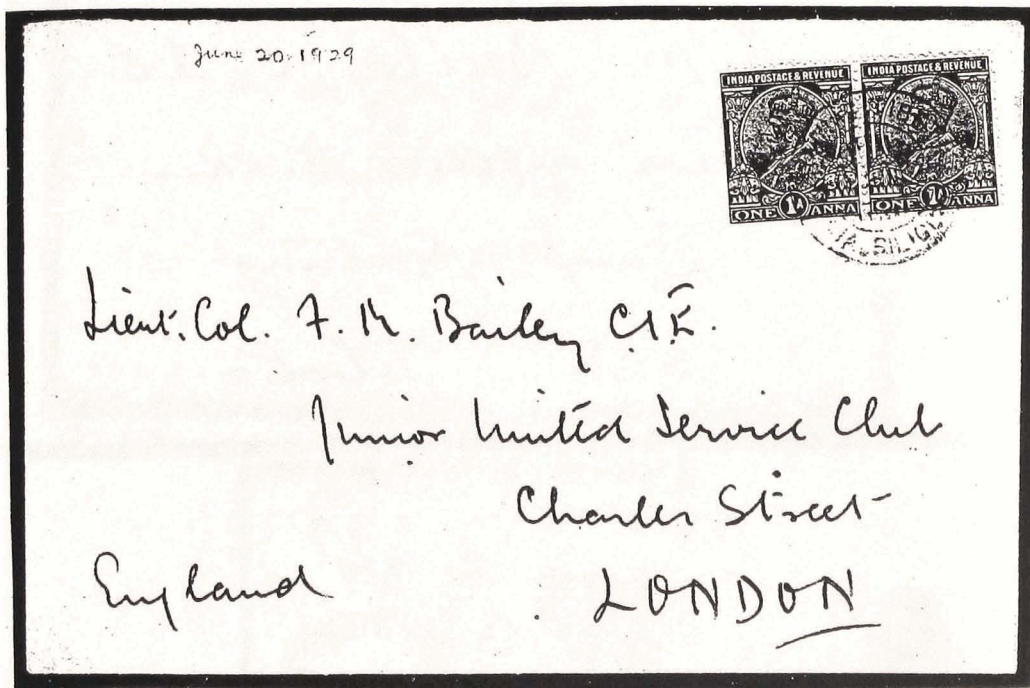 June 20. 1929
INDIA POSTAGE & REVENUE INDIA POSTAGE & REVENUE
ONE 1A ANNA ONE 1A ANNA
Lieut. Col. F. M. Bailey C.I.E.
Junior United Service Club
Charles Street
England LONDON